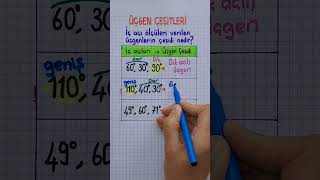 ÜÇGEN ÇEŞİTLERİ
İç açı ölçüleri verilen
üçgenlerin çeşidi nedir?
İç açıları ⇒ Üçgen Çeşidi
dar Dik
60°, 30°, 90° → Dik açılı
üçgen
geniş Dar
110°, 40°, 30° → G
49°, 60°, 71°